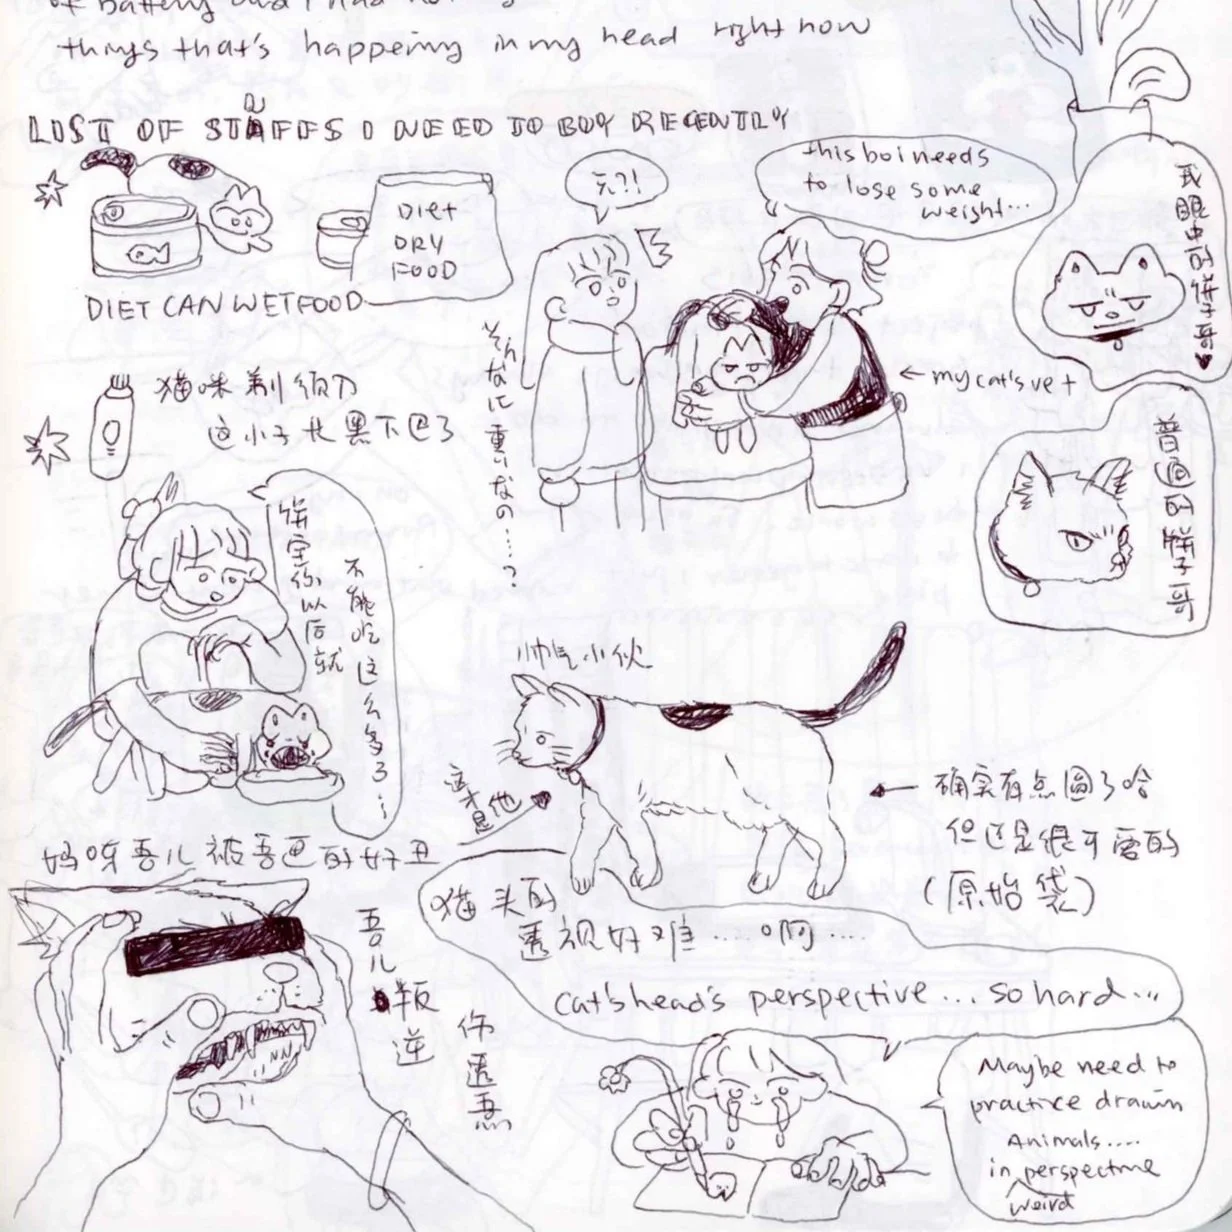 things that's happening in my head right now
LIST OF STUFFS I NEED TO BUY RECENTLY
DIET CAN WETFOOD
Diet
DRY
FOOD
元?!
this boi needs
to lose some
weight...
我眼中的饼子哥
← my cat's vet
そんなに重いなの……?
猫咪剃须刀
这小子长黑下巴了
普通的饼子哥
饼宝你以后就
不能吃这么多了…
帅气小伙
这才是他
← 确实有点圆了哈
但还是很可爱的
(原始袋)
妈呀吾儿被吾画的好丑
吾儿叛逆
你
猫头的
透视好难……啊……
cat's head's perspective... so hard...
Maybe need to
practice drawin
Animals.....
in perspective
weird